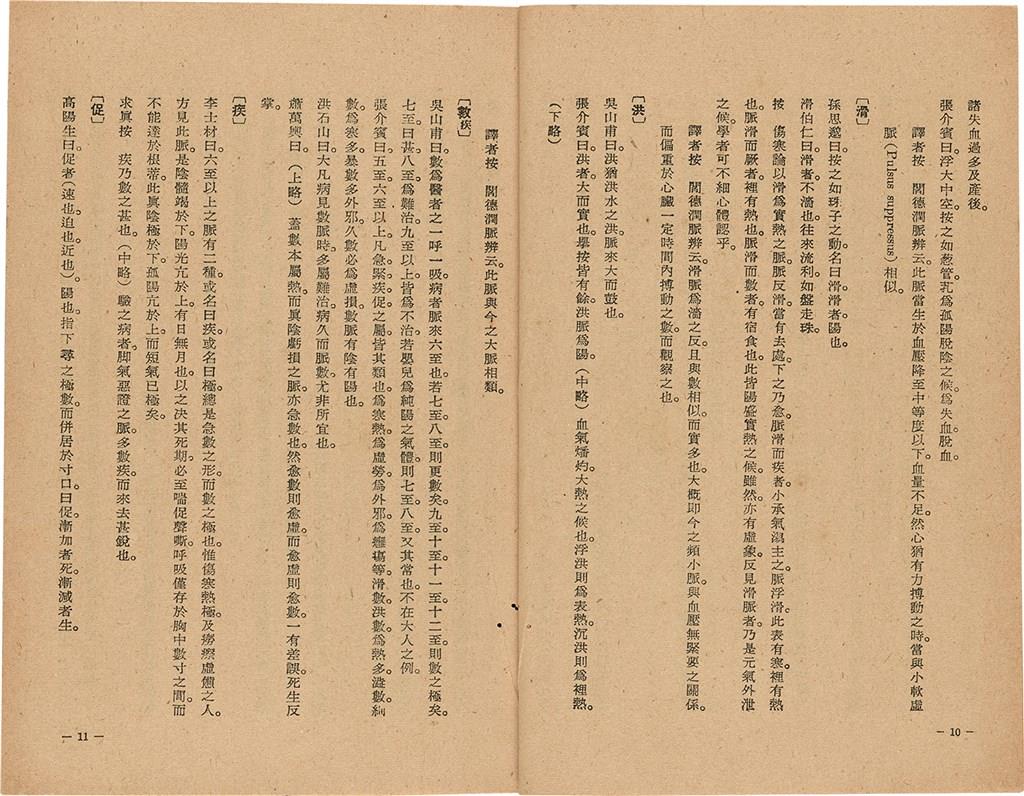 諸失血過多及產後。
張介賓曰。浮大中空。按之如葱管。芤爲孤陽脫陰之候。爲失血脫血。
譯者按　閻德潤脈辨云。此脈當生於血壓降至中等度以下。血量不足。然心猶有力搏動之時。當與小軟虛
脈(Pulsus suppressus)相似。
〔滑〕
孫思邈曰。按之如珠子之動。名曰滑。滑者陽也。
滑伯仁曰。滑者。不濇也。往來流利。如盤走珠。
按　傷寒論以滑爲實熱之脈。脈反滑。當有去處。下之乃愈。脈滑而疾者。小承氣湯主之。脈浮滑。此表有寒。裡有熱
也。脈滑而厥者。裡有熱也。脈滑而數者。有宿食也。此皆陽盛實熱之候。雖然。亦有虛象。反見滑脈者。乃是元氣外泄
之候。學者可不細心體認乎。
譯者按　閻德潤脈辨云。滑脈爲濇之反。且與數相似而實多也。大概即今之頻小脈。與血壓無緊要之關係。
而偏重於心臟一定時間內搏動之數。而觀察之也。
〔洪〕
吳山甫曰。洪猶洪水之洪。脈來大而鼓也。
張介賓曰。洪者。大而實也。舉按皆有餘。洪脈爲陽。(中略)血氣燔灼。大熱之候也。浮洪則爲表熱。沉洪則爲裡熱。
(下略)
譯者按　閻德潤脈辨云。此脈與今之大脈相類。
〔數疾〕
吳山甫曰。數爲醫者之一呼一吸。病者脈來六至也。若七至八至則更數矣。九至十至十一至十二至則數之極矣。
七至曰甚。八至爲難治。九至以上皆爲不治。若嬰兒爲純陽之氣體。則七至八至又其常也。不在大人之例。
張介賓曰。五至六至以上。凡急緊疾促之屬。皆其類也。爲寒熱。爲虛勞。爲外邪。爲癰瘍等。滑數洪數爲熱多。濇數細
數爲寒多。暴數多外邪。久數必爲虛損。數脈有陰有陽也。
洪石山曰。大凡病見數脈時。多屬難治。病久而脈數。尤非所宜也。
蕭萬輿曰。(上略)蓋數本屬熱。而眞陰虧損之脈。亦急數也。然愈數則愈虛。而愈虛則愈數。一有差誤。死生反
掌。
〔疾〕
李士材曰。六至以上之脈有二種。或名曰疾。或名曰極。總是急數之形。而數之極也。惟傷寒熱極。及癆瘵虛憊之人。
方見此脈。是陰髓竭於下。陽光亢於上。有日無月也。以之決其死期。必至喘促聲嘶。呼吸僅存於胸中數寸之間。而
不能達於根蒂。此眞陰極於下。孤陽亢於上。而短氣已極矣。
求眞按　疾乃數之甚也。(中略)驗之病者。脚氣惡證之脈。多數疾。而來去甚銳也。
〔促〕
高陽生曰。促者(速也。迫也。近也)。陽也。指下尋之極數。而併居於寸口曰促。漸加者死。漸減者生。
— 10 —
— 11 —